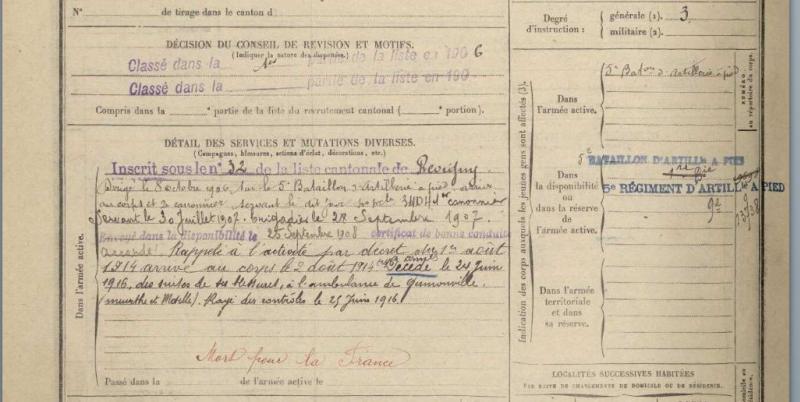 N°
de tirage dans le canton d
DÉCISION DU CONSEIL DE REVISION ET MOTIFS.
(Indiquer la nature des dispenses.)
Classé dans la 1re partie de la liste en 1906
Classé dans la partie de la liste en 190
Compris dans la e partie de la liste du recrutement cantonal ( e portion).
DÉTAIL DES SERVICES ET MUTATIONS DIVERSES.
(Campagnes, blessures, actions d'éclat, décorations, etc.)
Inscrit sous le n° 32 de la liste cantonale de Revigny
Dirigé le 8 octobre 1906, sur le 5e Bataillon d'Artillerie à pied, arrivé
au corps et 2e canonnier servant le dit jour 1er canonnier
servant le 30 juillet 1907. brigadier le 28 Septembre 1907.
Envoyé dans la disponibilité le 25 Septembre 1908 certificat de bonne conduite
accordé. Rappelé à l'activité par décret du 1er août
1914 arrivé au corps le 2 août 1914. Décédé le 24 Juin
1916, des suites de ses blessures, à l'ambulance de
(meurthe et Moselle). Rayé des contrôles le 25 Juin 1916.
Mort pour la France
Passé dans la de l'armée active le
Dans l'armée active.
Degré
d'instruction :
générale (1). 3
militaire (2).
Indication des corps auxquels les jeunes gens sont affectés (3).
Dans
l'armée active.
5e Baton d'Artillerie à pied
NUMÉRO
au répertoire du corps.
Dans
la disponibilité
ou dans la réserve
de l'armée active.
5e BATAILLON D'ARTILLE A PIED
5e RÉGIMENT D'ARTILLE A PIED
Dans l'armée
territoriale
et dans
sa réserve.
LOCALITÉS SUCCESSIVES HABITÉES
PAR SUITE DE CHANGEMENTS DE DOMICILE OU DE RÉSIDENCE.